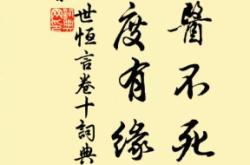 醫不死
度有緣
世恒言卷十詞典